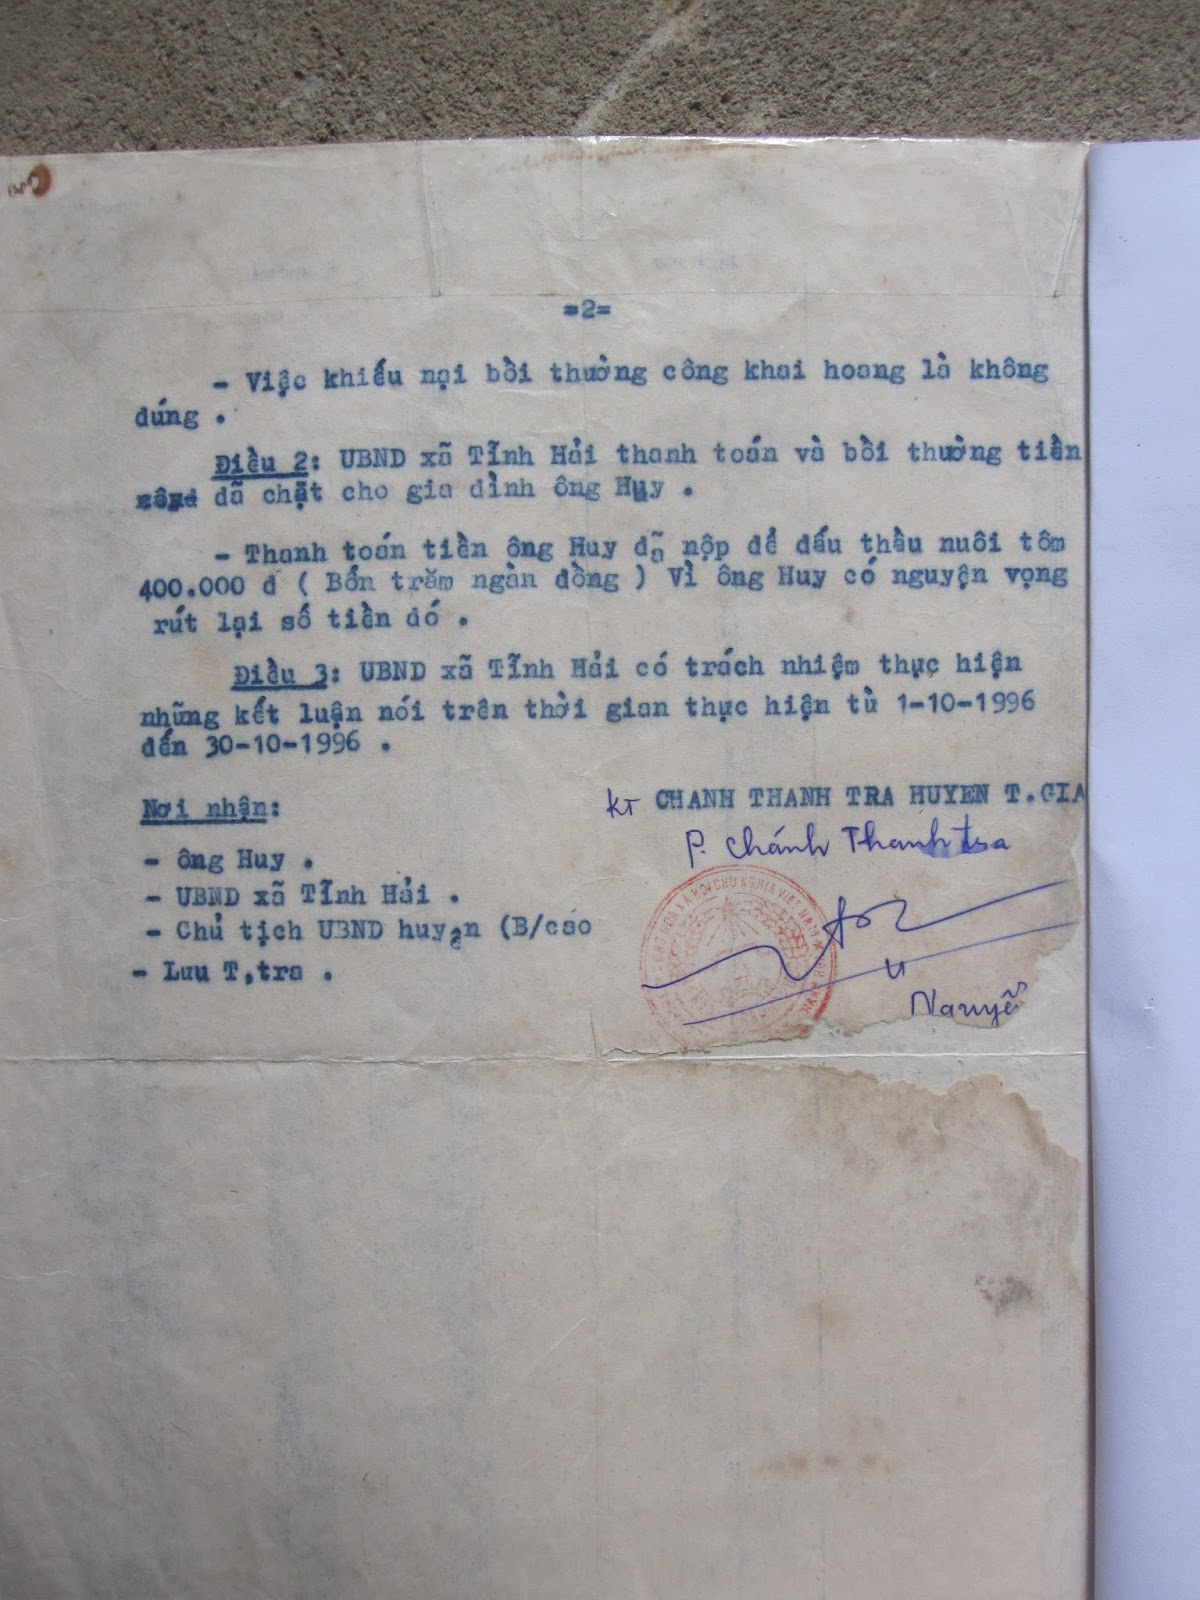 =2=
- Việc khiếu nại bồi thường công khai hoang là không
đúng .
Điều 2: UBND xã Tĩnh Hải thanh toán và bồi thường tiền
đã chặt cho gia đình ông Huy .
- Thanh toán tiền ông Huy đã nộp để đấu thầu nuôi tôm
400.000 đ ( Bốn trăm ngàn đồng ) Vì ông Huy có nguyện vọng
rút lại số tiền đó .
Điều 3: UBND xã Tĩnh Hải có trách nhiệm thực hiện
những kết luận nói trên thời gian thực hiện từ 1-10-1996
đến 30-10-1996 .
Nơi nhận:
- ông Huy .
- UBND xã Tĩnh Hải .
- Chủ tịch UBND huyện (B/cáo
- Lưu T,tra .
KT CHANH THANH TRA HUYEN T.GIA
P. Chánh Thanh tra
XÃ HỘI CHỦ NGHĨA VIỆT NAM
Nguyễ